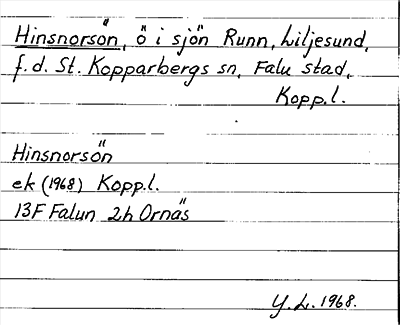 Hinsnorsön, ö i sjön Runn, Liljesund,
f.d. St. Kopparbergs sn, Falu stad,
Kopp.l.
Hinsnorsön
ek (1968) Kopp.l.
13F Falun 2h Ornäs
Y.L. 1968.